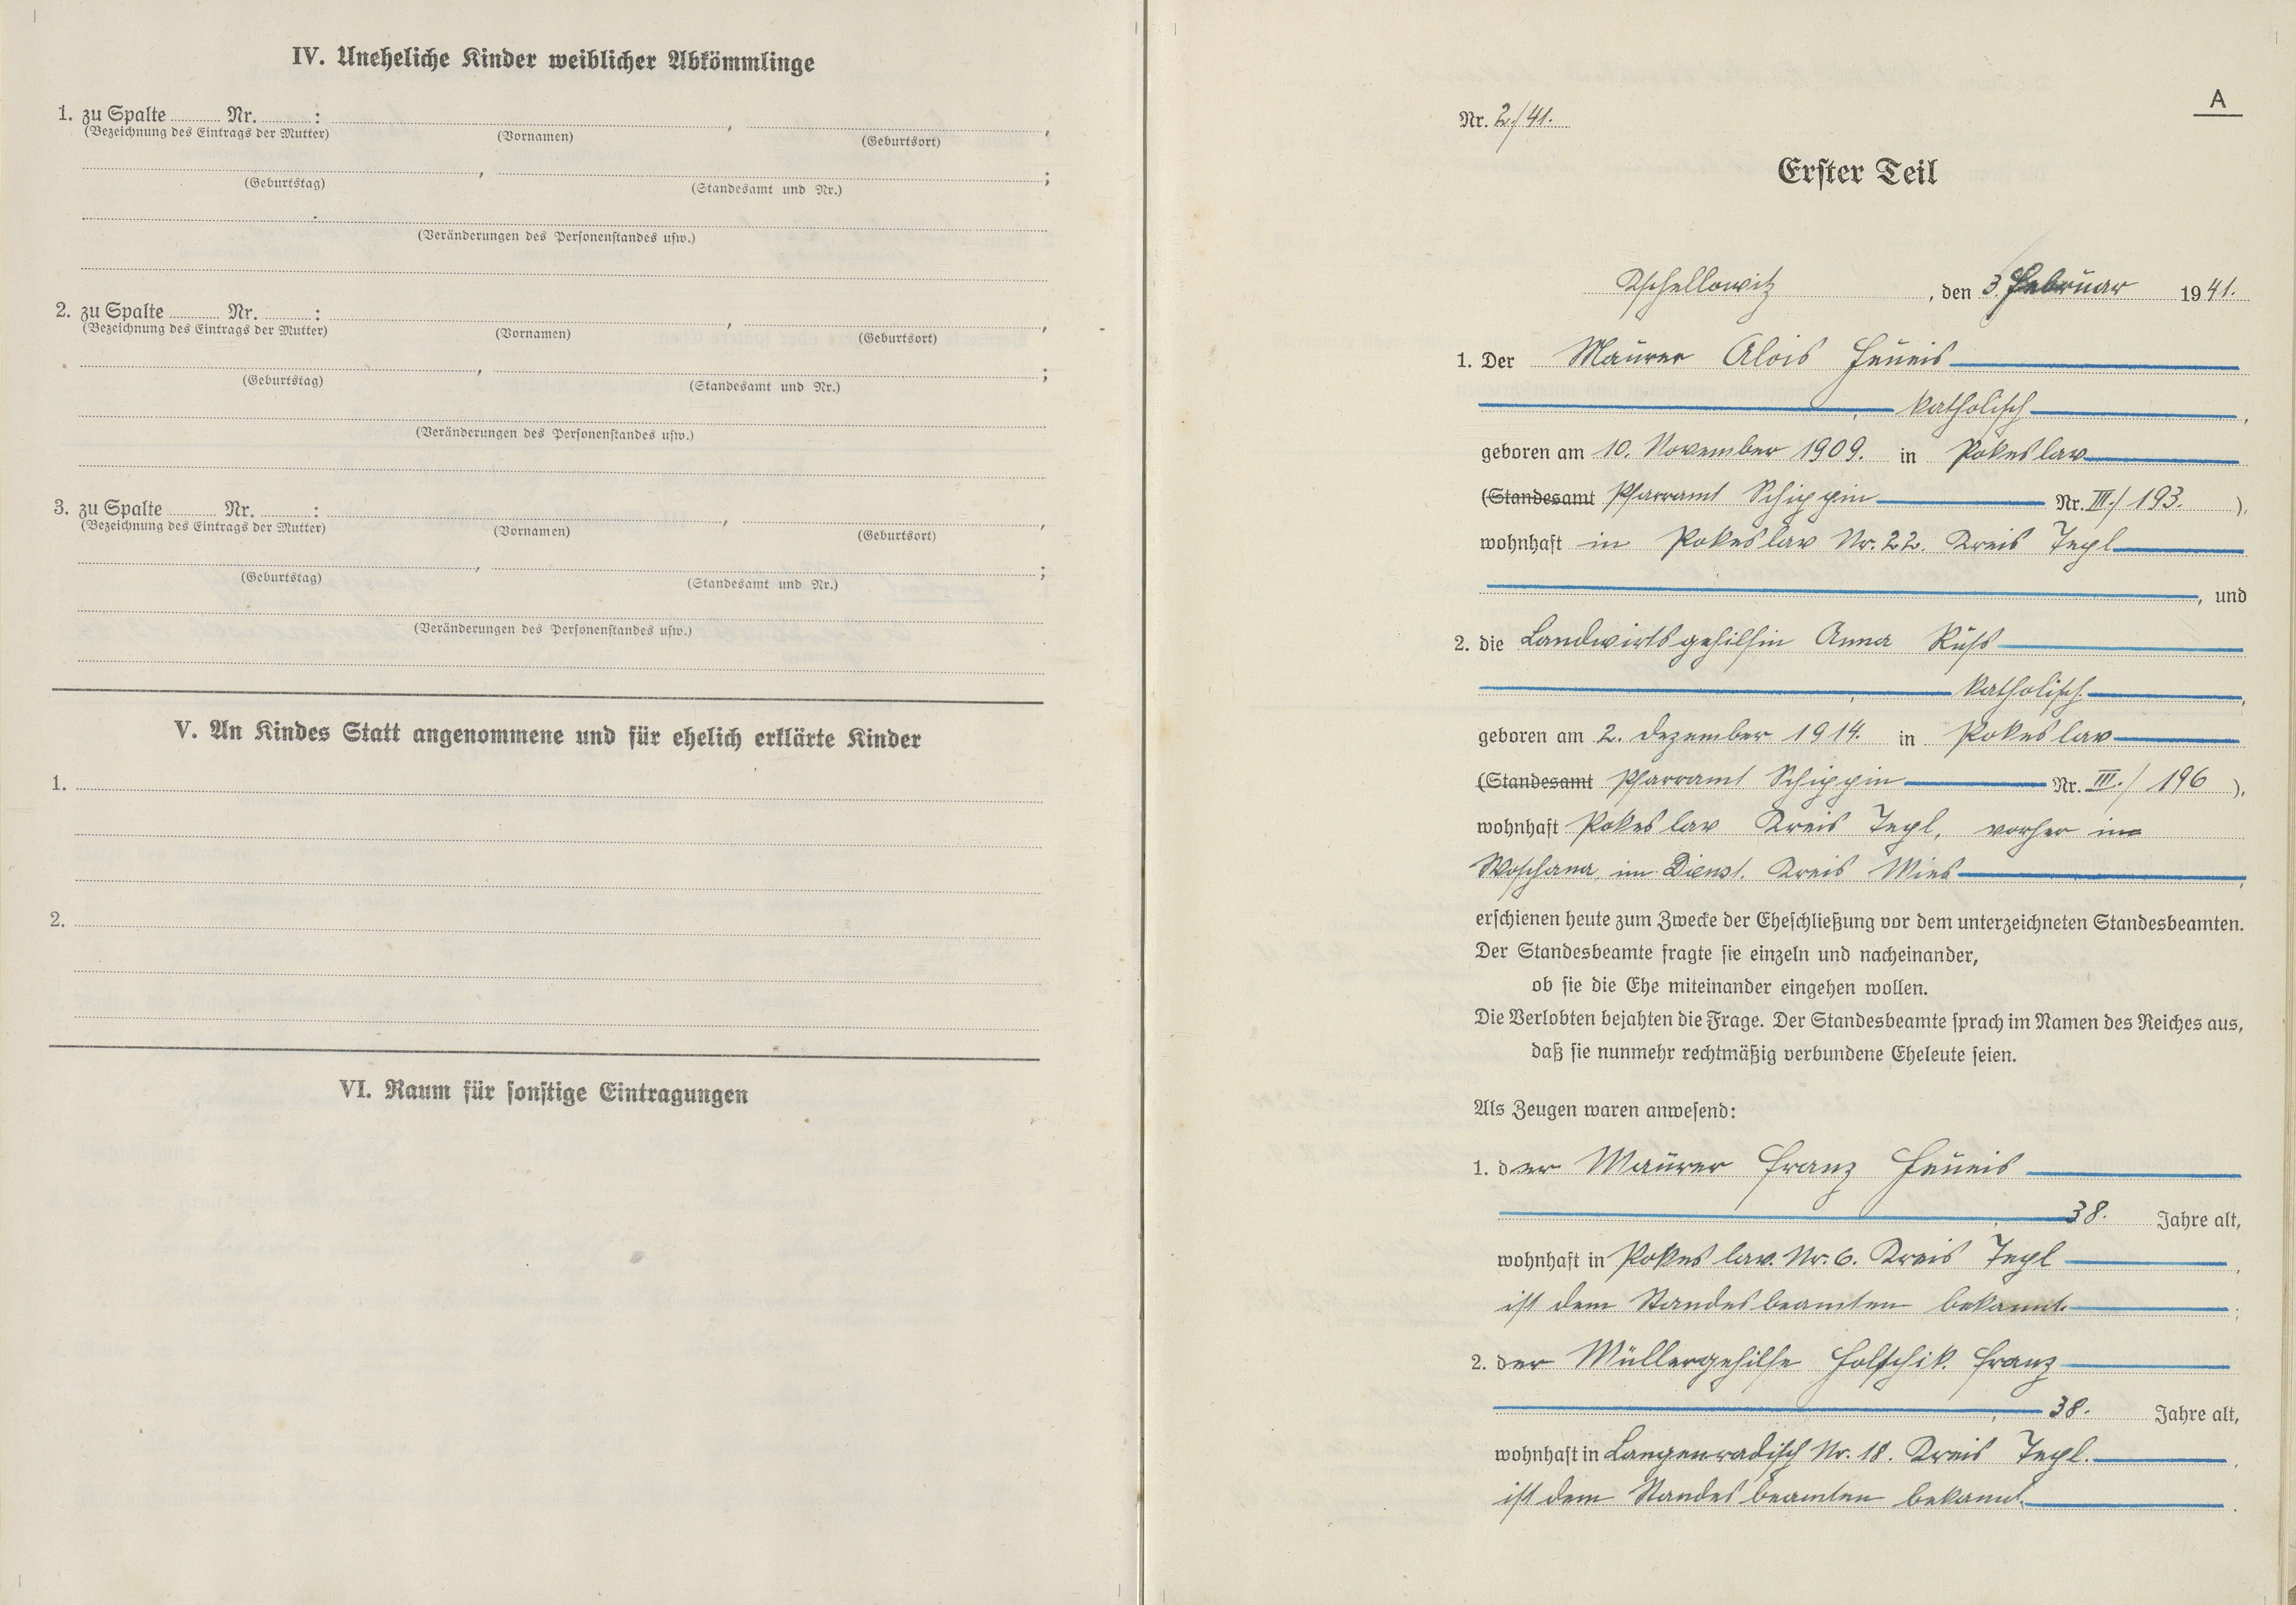 IV. Uneheliche Kinder weiblicher Abkömmlinge
1. zu Spalte ........ Nr. ........ : ........ , ........ ,
(Bezeichnung des Eintrags der Mutter) (Vornamen) (Geburtsort)
........ , ........ ;
(Geburtstag) (Standesamt und Nr.)
(Veränderungen des Personenstandes usw.)
2. zu Spalte ........ Nr. ........ : ........ , ........ ,
(Bezeichnung des Eintrags der Mutter) (Vornamen) (Geburtsort)
........ , ........ ;
(Geburtstag) (Standesamt und Nr.)
(Veränderungen des Personenstandes usw.)
3. zu Spalte ........ Nr. ........ : ........ , ........ ,
(Bezeichnung des Eintrags der Mutter) (Vornamen) (Geburtsort)
........ , ........ ;
(Geburtstag) (Standesamt und Nr.)
(Veränderungen des Personenstandes usw.)
V. An Kindes Statt angenommene und für ehelich erklärte Kinder
1.
2.
VI. Raum für sonstige Eintragungen
A
Nr. 2./41.
Erster Teil
Tschellowitz, den 3. Februar 1941.
1. Der Maurer Alois Heneis
, katholisch ,
geboren am 10. November 1909. in Pokeslaw
(Standesamt Pfarramt Schippin Nr. III./193. ),
wohnhaft in Pokeslav Nr. 22. Kreis Tepl
, und
2. die Landwirtsgehilfin Anna Russ
, katholisch ,
geboren am 2. Dezember 1914. in Pokeslav
(Standesamt Pfarramt Schippin Nr. III./196 ),
wohnhaft Pokeslav Kreis Tepl, vorher in
Woschana, im Dienst. Kreis Mies ,
erschienen heute zum Zwecke der Eheschließung vor dem unterzeichneten Standesbeamten.
Der Standesbeamte fragte sie einzeln und nacheinander,
ob sie die Ehe miteinander eingehen wollen.
Die Verlobten bejahten die Frage. Der Standesbeamte sprach im Namen des Reiches aus,
daß sie nunmehr rechtmäßig verbundene Eheleute seien.
Als Zeugen waren anwesend:
1. der Maurer Franz Heneis
, 38. Jahre alt,
wohnhaft in Pokeslav. Nr. 6. Kreis Tepl ,
ist dem Standesbeamten bekannt. ;
2. der Müllergehilfe Holschik. Franz
, 38. Jahre alt,
wohnhaft in Langenradisch Nr. 18. Kreis Tepl. ,
ist dem Standesbeamten bekannt. .